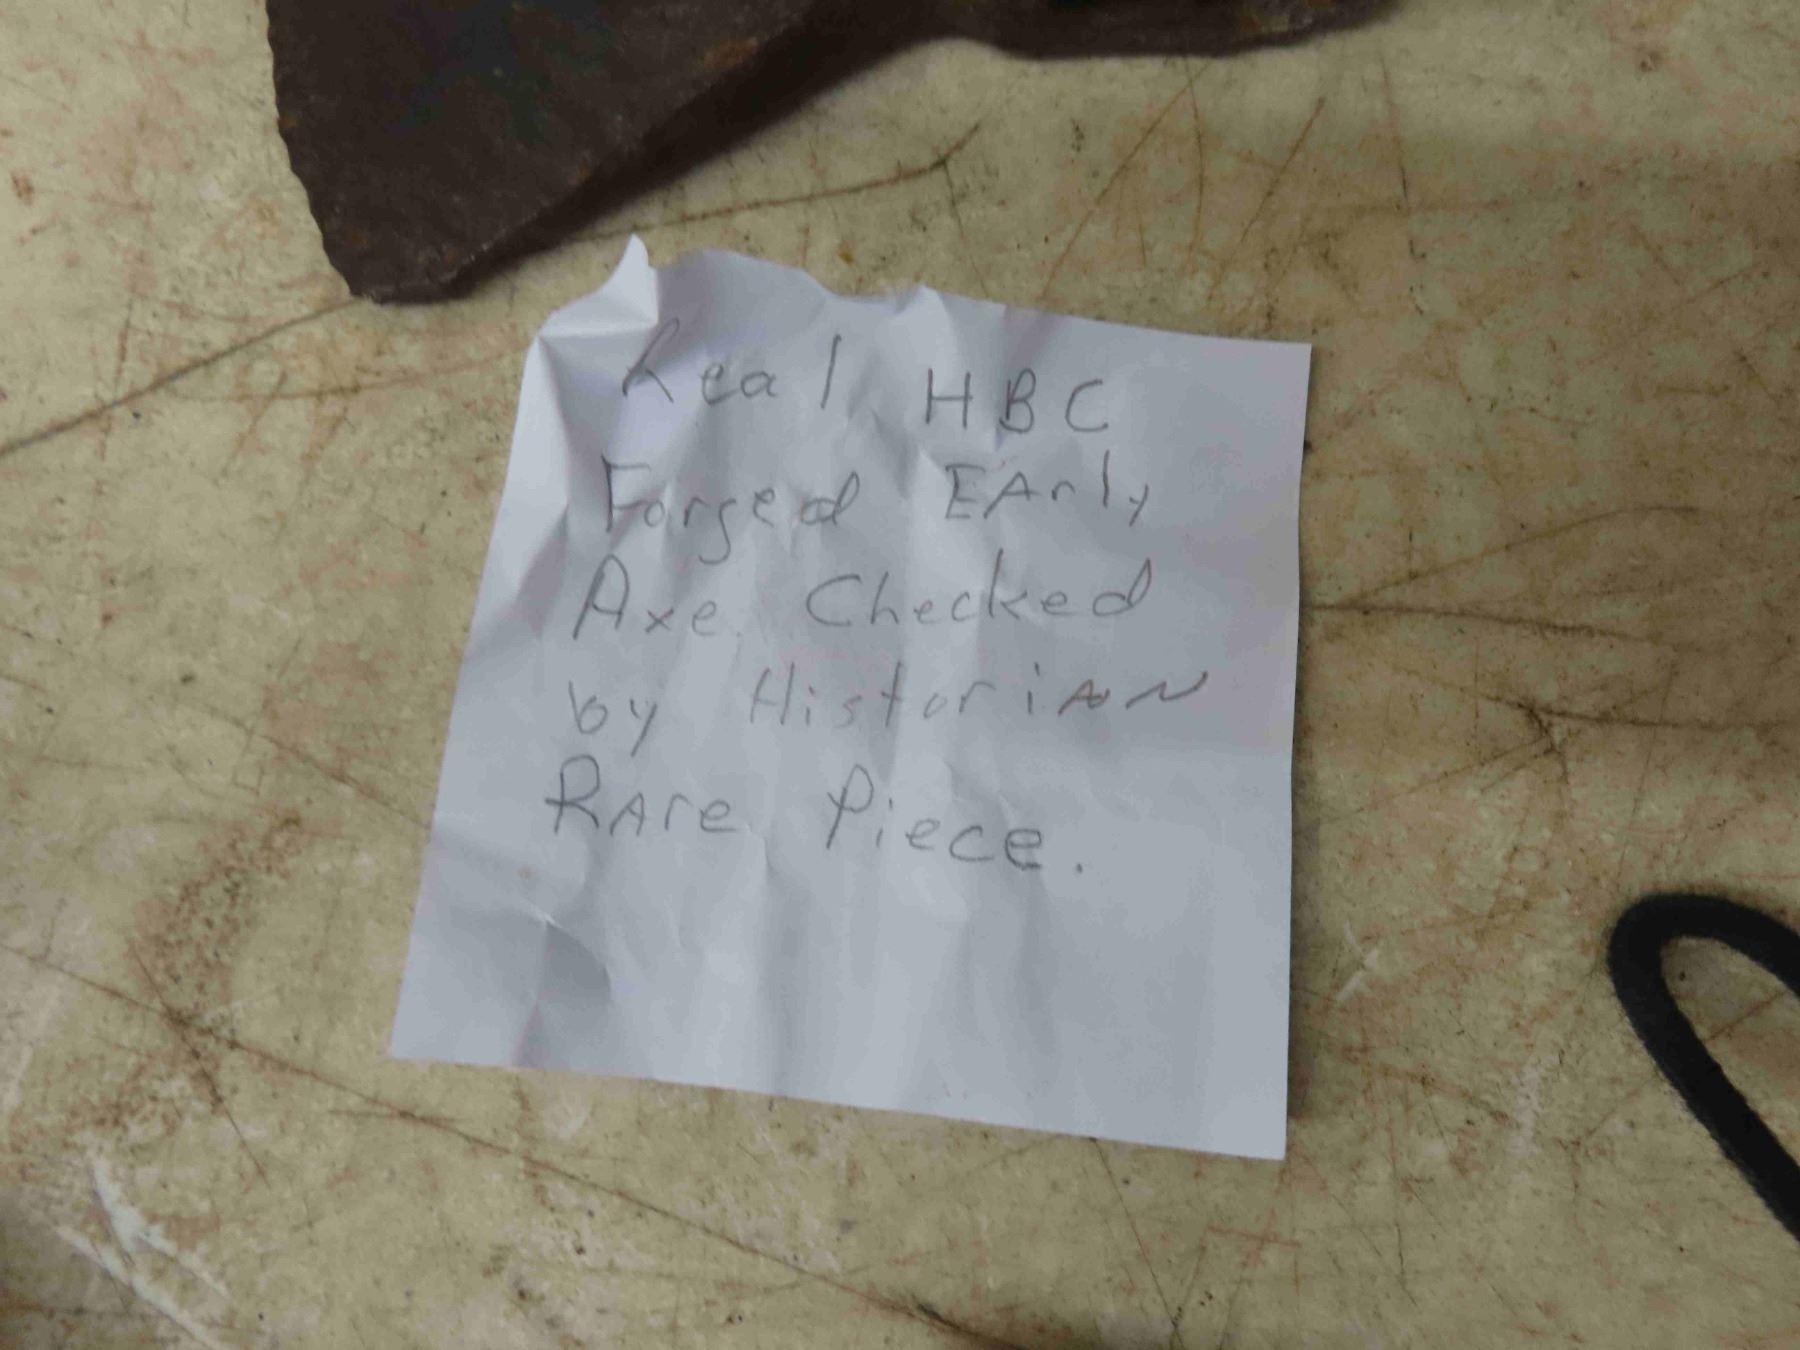 Real HBC
Forged EArly
Axe Checked
by HistoriAN
RAre Piece.